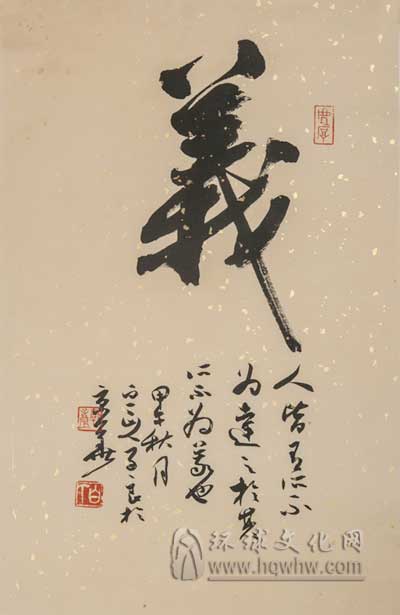 義
人皆有所不
為達之於其
所不為義也
甲午秋月
子良於
京華
环球文化网
www.hqwhw.com